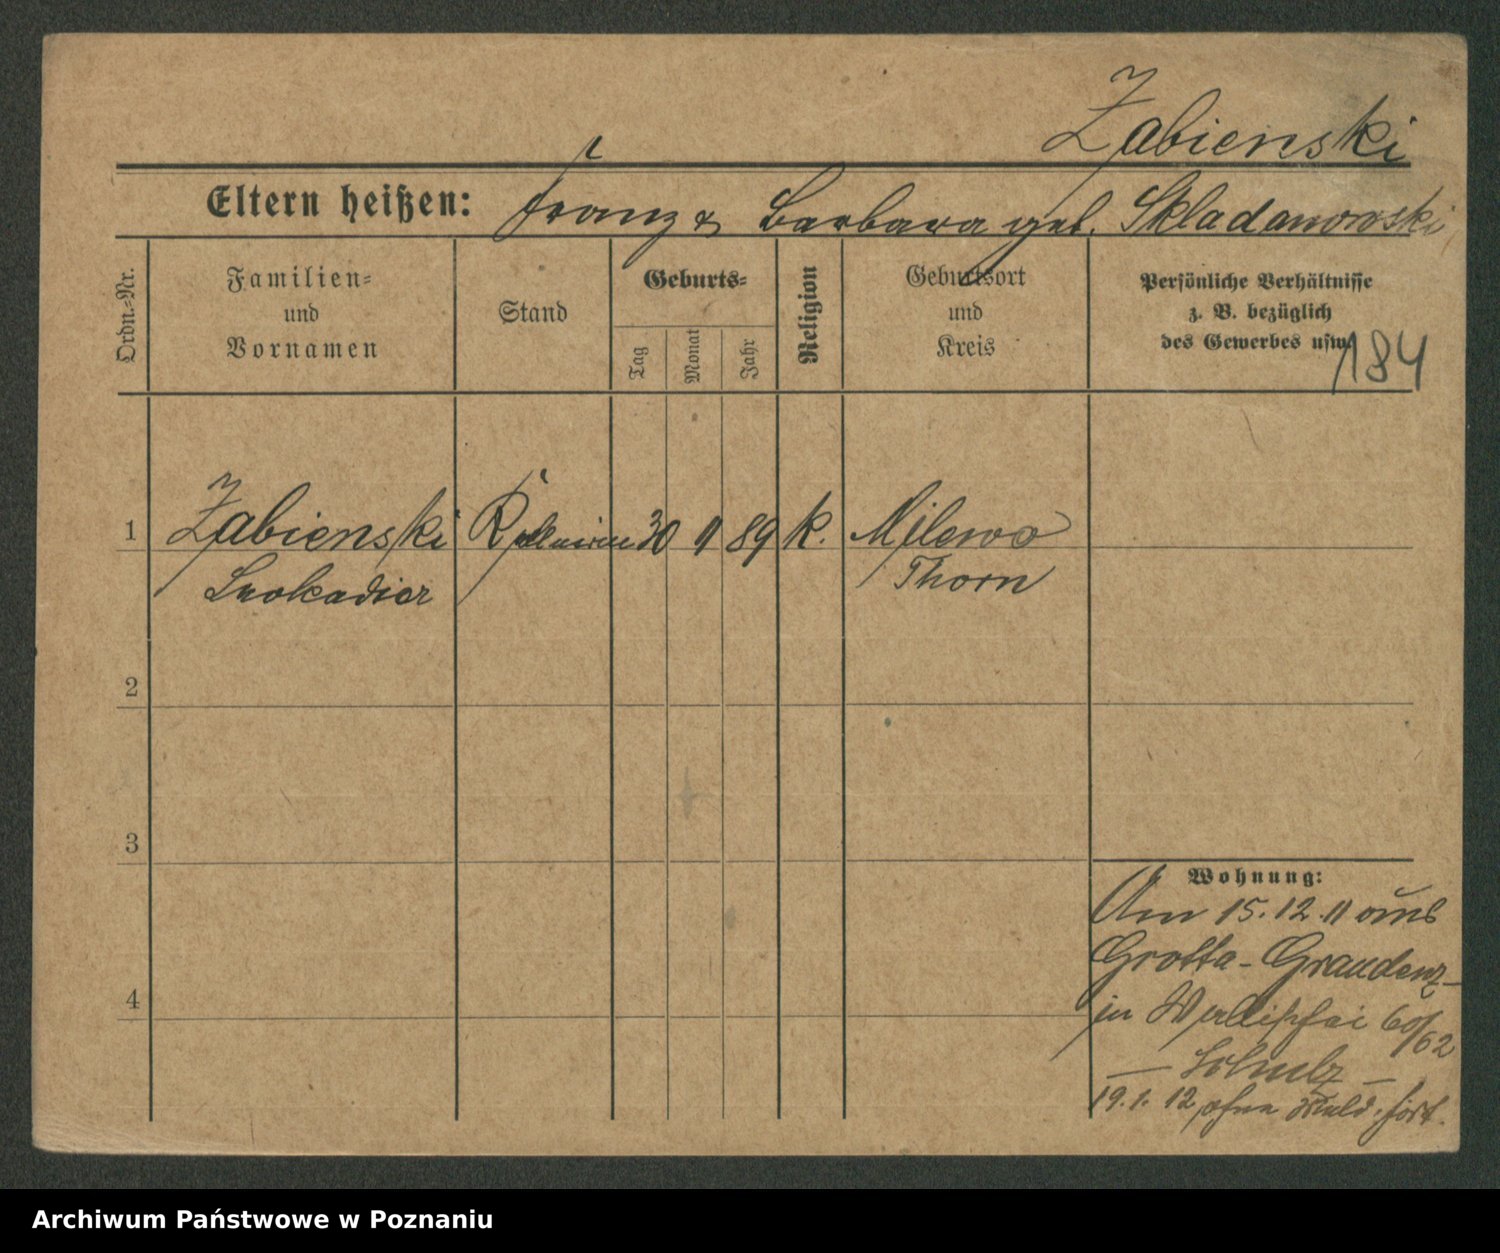 Zabienski
Eltern heißen: Franz & Barbara geb. Skladanowski
Ordn.-Nr.
Familien-
und
Vornamen
Stand
Geburts-
Tag
Monat
Jahr
Religion
Geburtsort
und
Kreis
Persönliche Verhältnisse
z. B. bezüglich
des Gewerbes usw.
184
1
Zabienski
Leokadia
Kellnerin
30
11
89
k.
Milewo
Thorn
2
3
4
Wohnung:
Am 15.12.11 aus
Grotta-Graudenz
in Wallischei 60/62
— Schulz —
19.1.12 ohne Meld. fort.
Archiwum Państwowe w Poznaniu